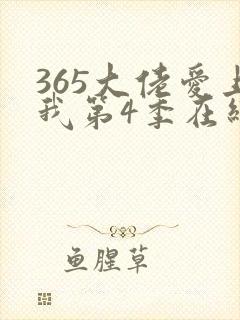 365大佬爱上
我第4季在线
鱼腥草